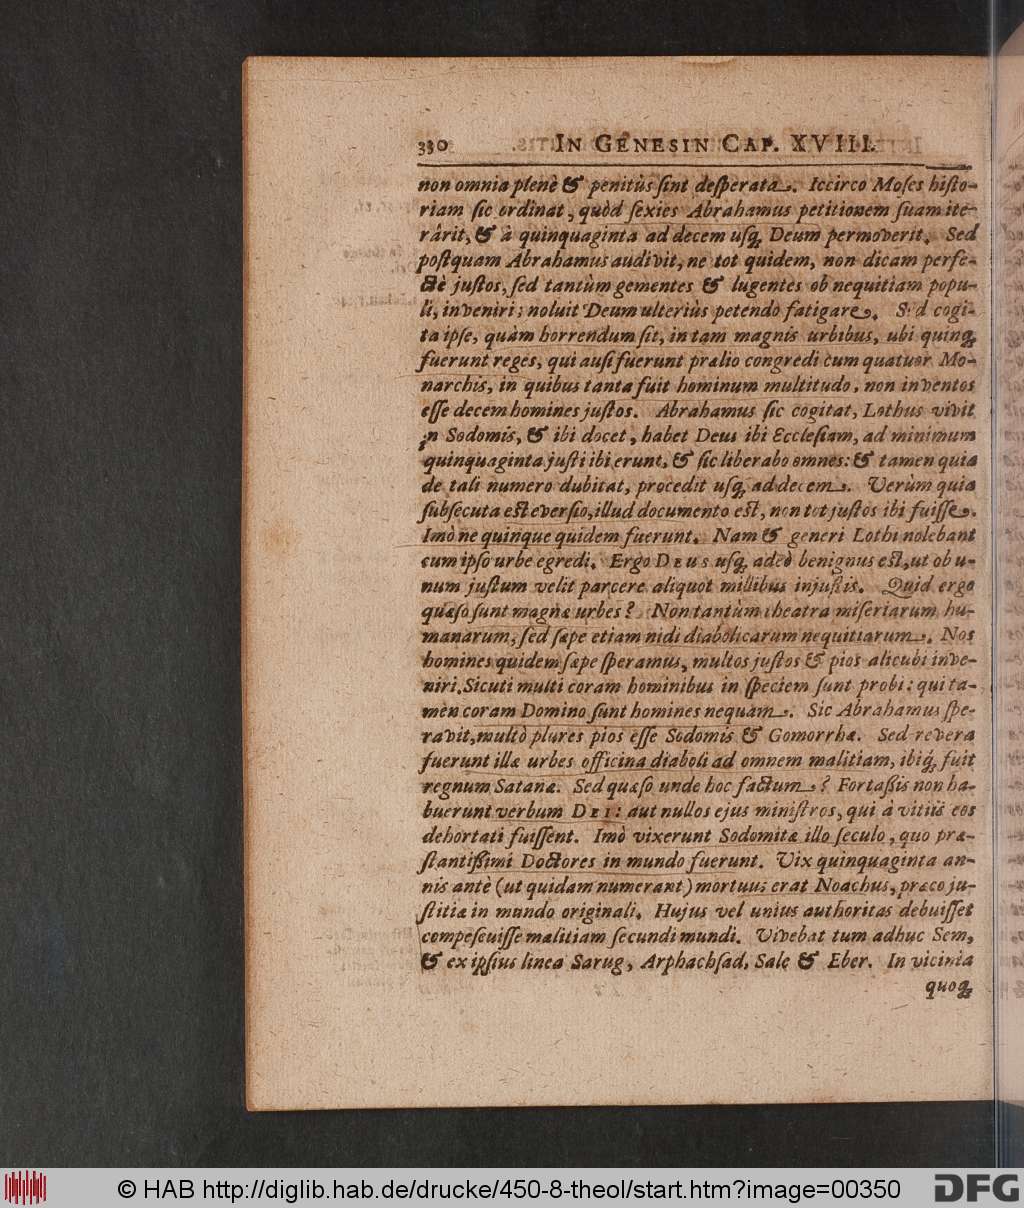 330 IN GENESIN CAP. XVIII.
non omnia plenè & penitùs ſint deſperata. Iccirco Moſes hiſto-
riam ſic ordinat, quòd ſexies Abrahamus petitionem ſuam ite-
rârit, & à quinquaginta ad decem uſq; Deum permoverit. Sed
poſtquam Abrahamus audivit, ne tot quidem, non dicam perfe-
ctè juſtos, ſed tantùm gementes & lugentes ob nequitiam popu-
li, inveniri; noluit Deum ulteriùs petendo fatigare. Sed cogi-
ta ipſe, quàm horrendum ſit, in tam magnis urbibus, ubi quinq;
fuerunt reges, qui auſi fuerunt prælio congredi cum quatuor Mo-
narchis, in quibus tanta fuit hominum multitudo, non inventos
eſſe decem homines juſtos. Abrahamus ſic cogitat, Lothus vivit
in Sodomis, & ibi docet, habet Deus ibi Eccleſiam, ad minimum
quinquaginta juſti ibi erunt, & ſic liberabo omnes: & tamen quia
de tali numero dubitat, procedit uſq; ad decem. Verùm quia
ſubſecuta eſt everſio, illud documento eſt, non tot juſtos ibi fuiſſe.
Imò ne quinque quidem fuerunt. Nam & generi Lothi nolebant
cum ipſo urbe egredi. Ergo DEUS uſq; adeò benignus eſt, ut ob u-
num juſtum velit parcere aliquot millibus injuſtis. Quid ergo
quæſo ſunt magnæ urbes? Non tantùm theatra miſeriarum hu-
manarum, ſed ſæpe etiam nidi diabolicarum nequitiarum. Nos
homines quidem ſæpe ſperamus, multos juſtos & pios alicubi inve-
niri. Sicuti multi coram hominibus in ſpeciem ſunt probi: qui ta-
mèn coram Domino ſunt homines nequam. Sic Abrahamus ſpe-
ravit, multò plures pios eſſe Sodomis & Gomorrhæ. Sed revera
fuerunt illæ urbes officina diaboli ad omnem malitiam, ibiq; fuit
regnum Satanæ. Sed quæſo unde hoc factum? Fortaſsis non ha-
buerunt verbum DEI: aut nullos ejus miniſtros, qui à vitiis eos
dehortati fuiſſent. Imò vixerunt Sodomitæ illo ſeculo, quo præ-
ſtantiſſimi Doctores in mundo fuerunt. Vix quinquaginta an-
nis antè (ut quidam numerant) mortuus erat Noachus, præco ju-
ſtitiæ in mundo originali. Hujus vel unius authoritas debuiſſet
compeſcuiſſe malitiam ſecundi mundi. Vivebat tum adhuc Sem,
& ex ipſius linea Sarug, Arphachſad, Sale & Eber. In vicinia
quoq;
© HAB http://diglib.hab.de/drucke/450-8-theol/start.htm?image=00350
DFG